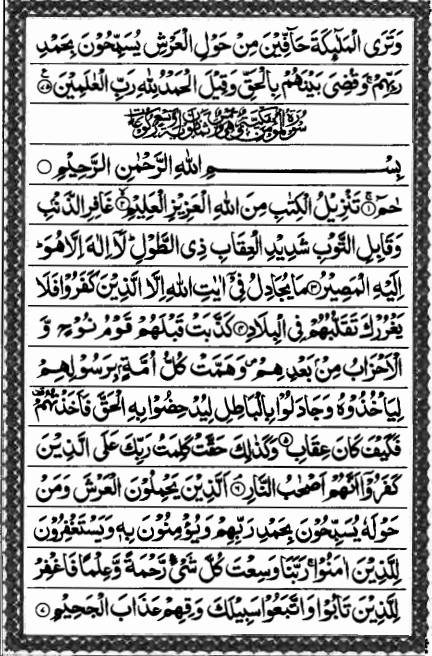 وَتَرَى الْمَلٰٓئِكَةَ حَآفِّيْنَ مِنْ حَوْلِ الْعَرْشِ يُسَبِّحُوْنَ بِحَمْدِ
رَبِّهِمْ ۚ وَقُضِيَ بَيْنَهُمْ بِالْحَقِّ وَقِيْلَ الْحَمْدُ لِلّٰهِ رَبِّ الْعٰلَمِيْنَ ۝۷۵
سُوْرَةُ الْمُؤْمِنِ مَكِّيَّةٌ وَّهِيَ
بِسْمِ اللّٰهِ الرَّحْمٰنِ الرَّحِيْمِ ۝
حٰمٓ ۝۱ تَنْزِيْلُ الْكِتٰبِ مِنَ اللّٰهِ الْعَزِيْزِ الْعَلِيْمِ ۝۲ غَافِرِ الذَّنْۢبِ
وَقَابِلِ التَّوْبِ شَدِيْدِ الْعِقَابِ ذِي الطَّوْلِ ؕ لَآ اِلٰهَ اِلَّا هُوَ ؕ
اِلَيْهِ الْمَصِيْرُ ۝۳ مَا يُجَادِلُ فِيْٓ اٰيٰتِ اللّٰهِ اِلَّا الَّذِيْنَ كَفَرُوْا فَلَا
يَغْرُرْكَ تَقَلُّبُهُمْ فِي الْبِلَادِ ۝۴ كَذَّبَتْ قَبْلَهُمْ قَوْمُ نُوْحٍ وَّ
الْاَحْزَابُ مِنْۢ بَعْدِهِمْ ۪ وَهَمَّتْ كُلُّ اُمَّةٍۭ بِرَسُوْلِهِمْ
لِيَاْخُذُوْهُ وَجَادَلُوْا بِالْبَاطِلِ لِيُدْحِضُوْا بِهِ الْحَقَّ فَاَخَذْتُهُمْ
فَكَيْفَ كَانَ عِقَابِ ۝۵ وَكَذٰلِكَ حَقَّتْ كَلِمَتُ رَبِّكَ عَلَى الَّذِيْنَ
كَفَرُوْٓا اَنَّهُمْ اَصْحٰبُ النَّارِ ۝۶ اَلَّذِيْنَ يَحْمِلُوْنَ الْعَرْشَ وَمَنْ
حَوْلَهٗ يُسَبِّحُوْنَ بِحَمْدِ رَبِّهِمْ وَيُؤْمِنُوْنَ بِهٖ وَيَسْتَغْفِرُوْنَ
لِلَّذِيْنَ اٰمَنُوْا ۚ رَبَّنَا وَسِعْتَ كُلَّ شَيْءٍ رَّحْمَةً وَّعِلْمًا فَاغْفِرْ
لِلَّذِيْنَ تَابُوْا وَاتَّبَعُوْا سَبِيْلَكَ وَقِهِمْ عَذَابَ الْجَحِيْمِ ۝۷